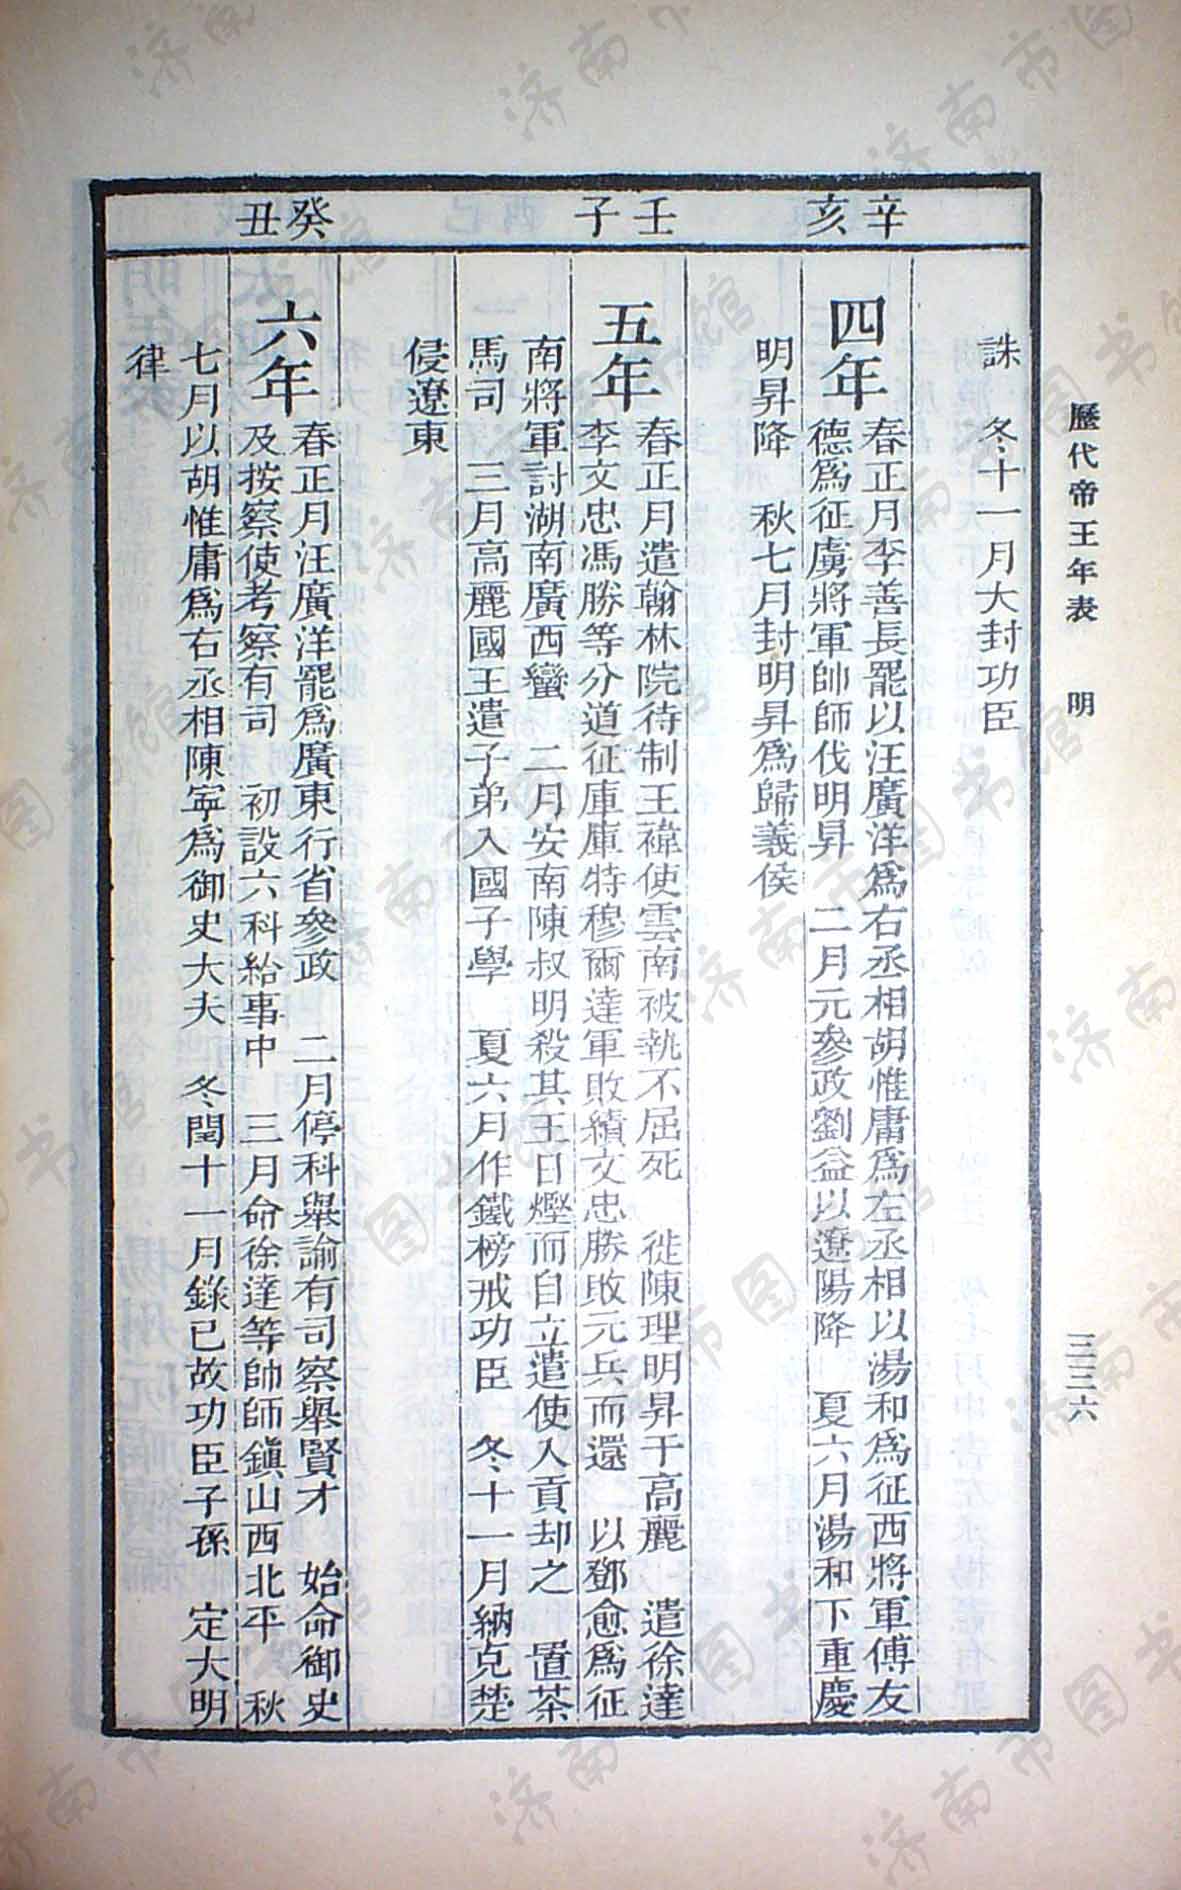 歷代帝王年表　明
三三六
辛亥
壬子
癸丑
誅　冬十一月大封功臣
四年
春正月李善長罷以汪廣洋爲右丞相胡惟庸爲左丞相以湯和爲征西將軍傅友
德爲征虜將軍帥師伐明昇　二月元參政劉益以遼陽降　夏六月湯和下重慶
明昇降　秋七月封明昇爲歸義侯
五年
春正月遣翰林院待制王禕使雲南被執不屈死　徙陳理明昇于高麗　遣徐達
李文忠馮勝等分道征庫庫特穆爾達軍敗績文忠勝敗元兵而還　以鄧愈爲征
南將軍討湖南廣西蠻　二月安南陳叔明殺其王日熞而自立遣使入貢却之　置茶
馬司　三月高麗國王遣子弟入國子學　夏六月作鐵榜戒功臣　冬十一月納克楚
侵遼東
六年
春正月汪廣洋罷爲廣東行省參政　二月停科舉諭有司察舉賢才　始命御史
及按察使考察有司　初設六科給事中　三月命徐達等帥師鎭山西北平　秋
七月以胡惟庸爲右丞相陳寧爲御史大夫　冬閏十一月錄已故功臣子孫　定大明
律
济南市图书馆